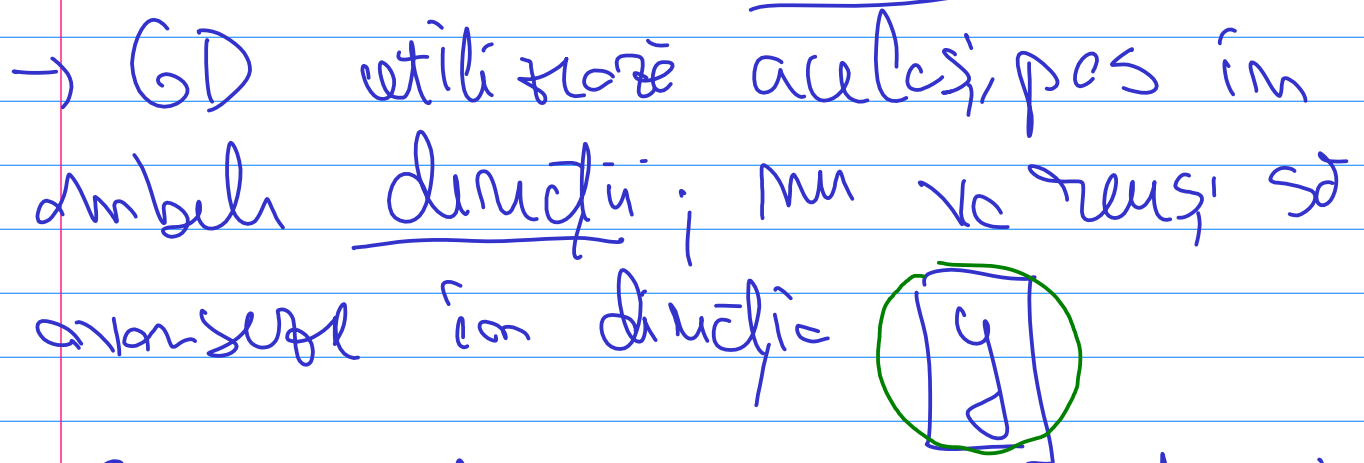 → GD utilizează același pas în
ambele direcții; nu va reuși să
avanseze în direcția y